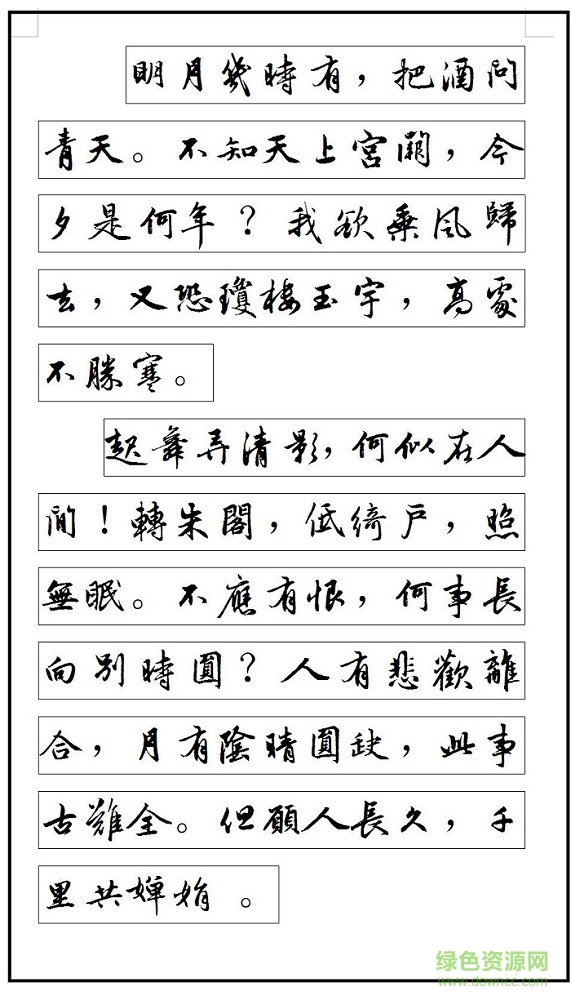 明月幾時有，把酒問
青天。不知天上宮闕，今
夕是何年？我欲乘風歸
去，又恐瓊樓玉宇，高處
不勝寒。
起舞弄清影，何似在人
間！轉朱閣，低綺戶，照
無眠。不應有恨，何事長
向別時圓？人有悲歡離
合，月有陰晴圓缺，此事
古難全。但願人長久，千
里共嬋娟。
绿色资源网
www.downcc.com